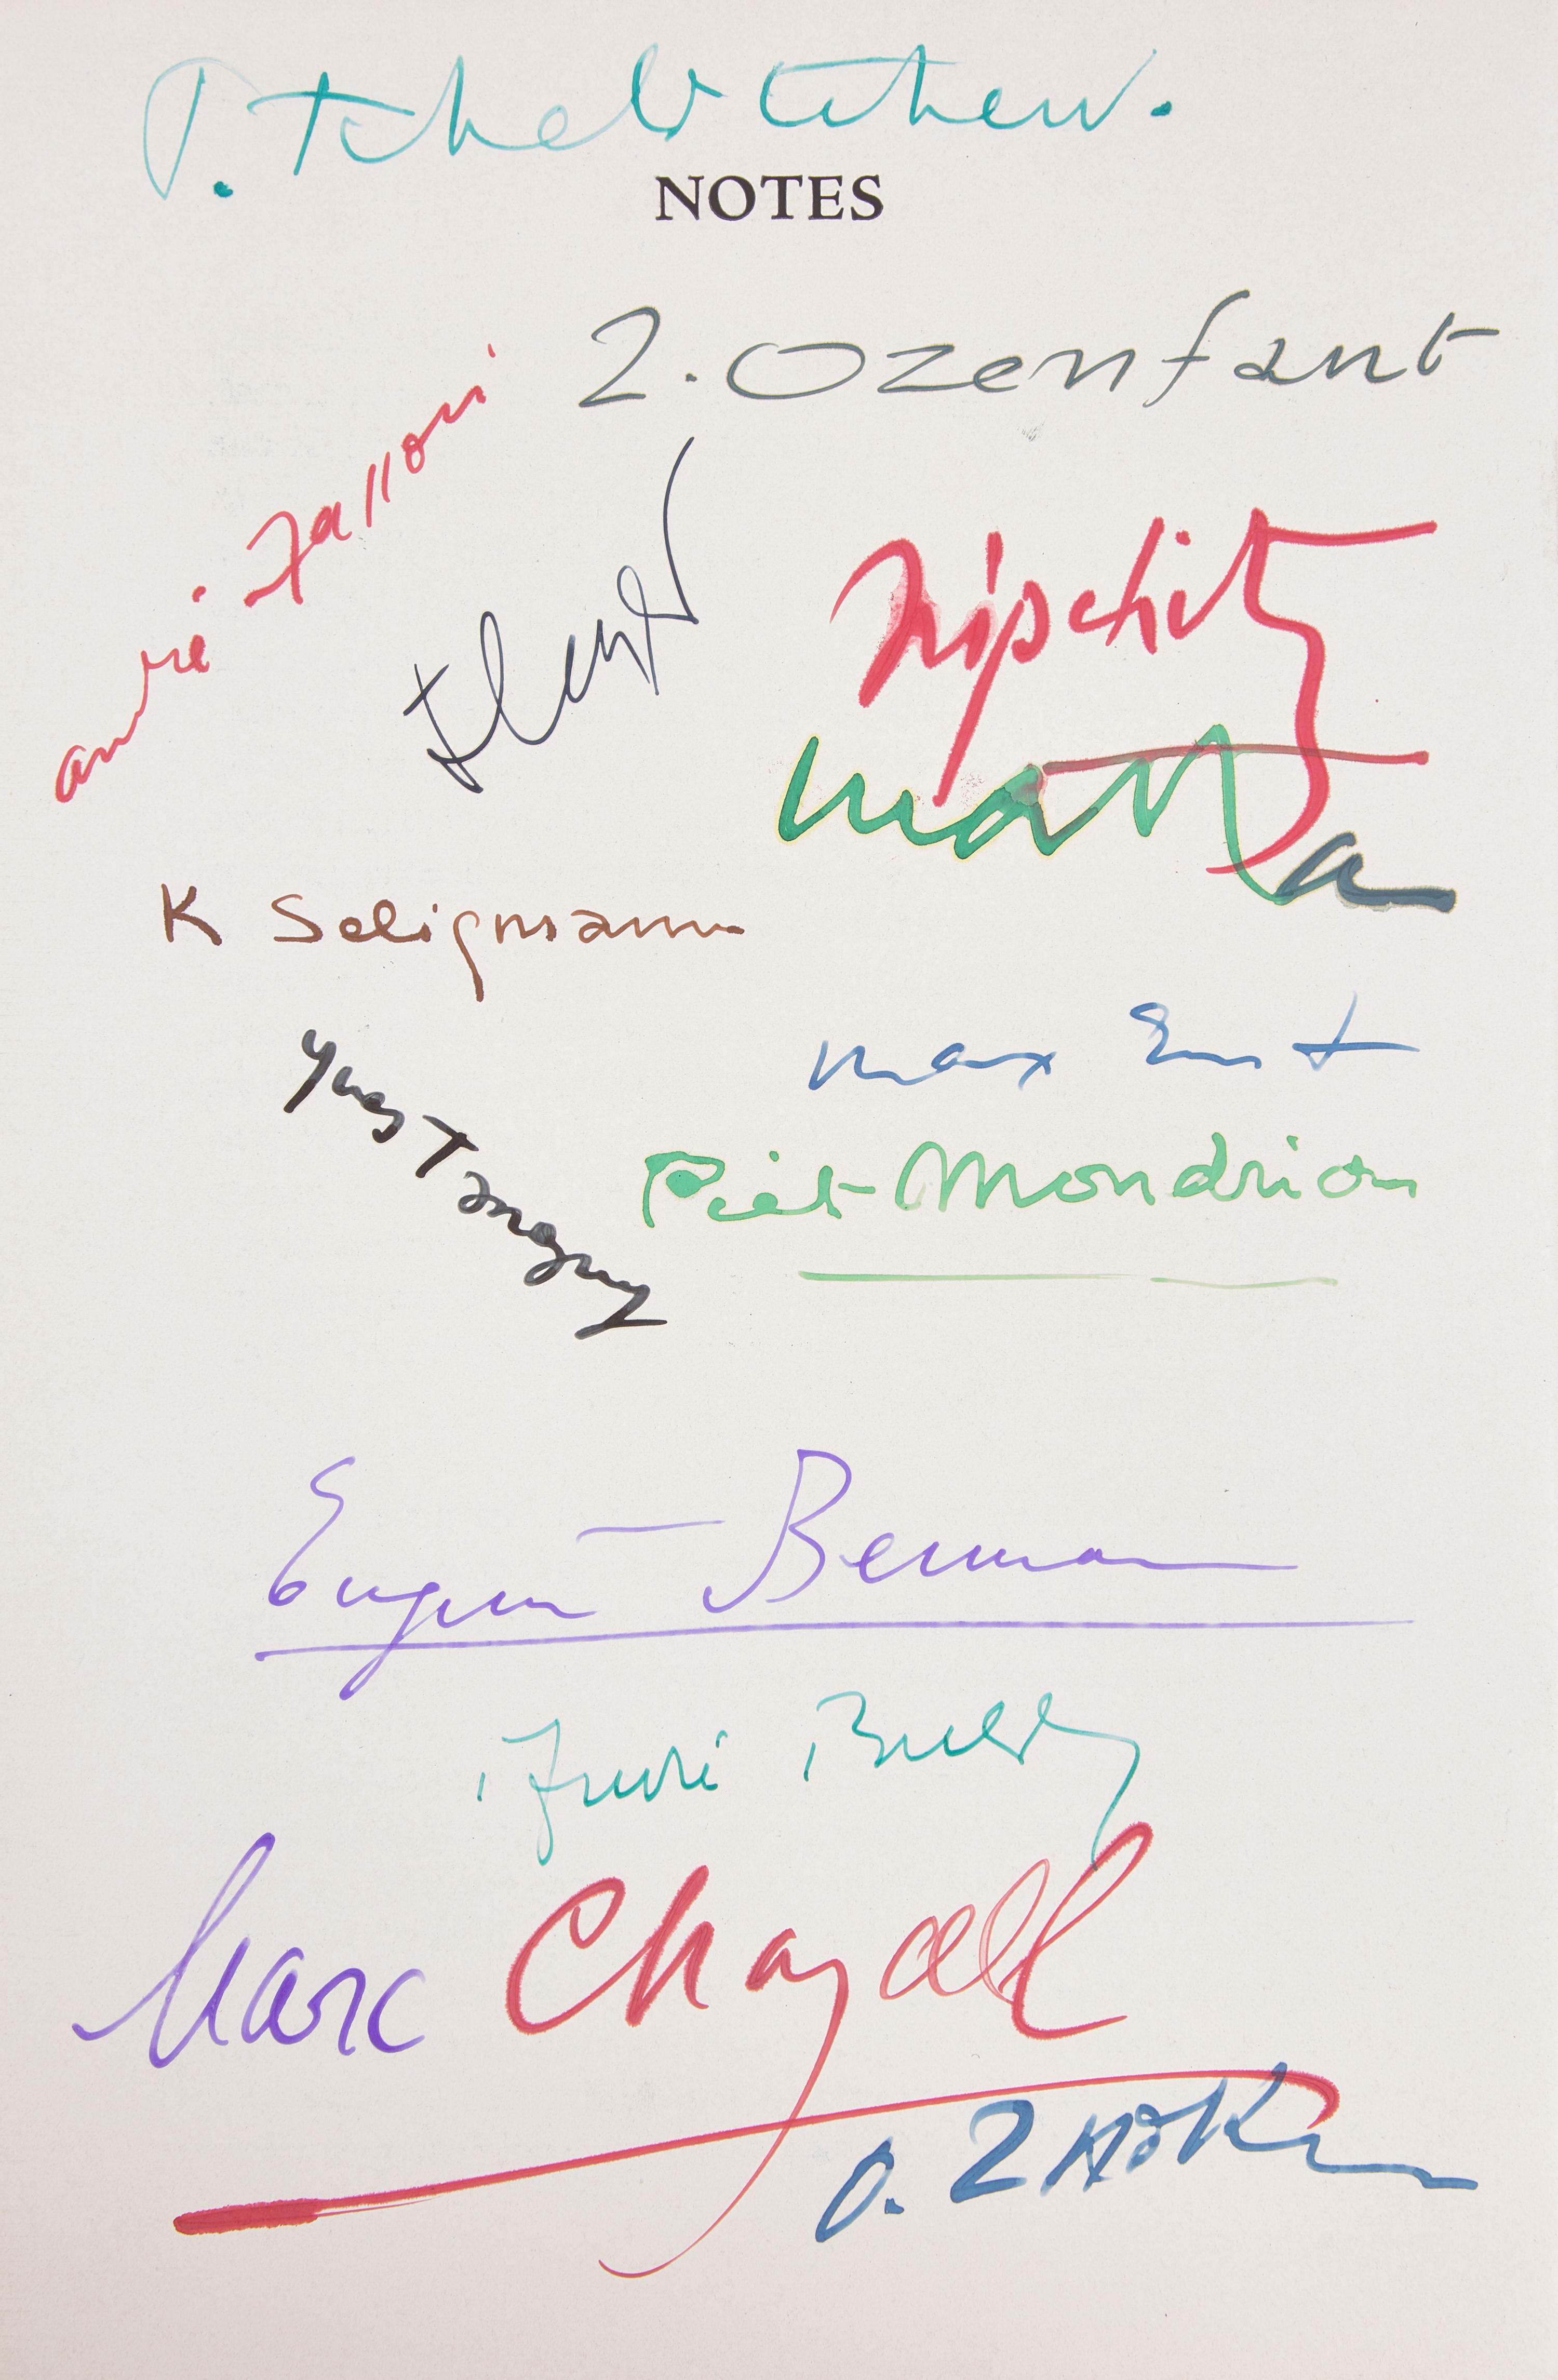 P. Tchelitchew.
NOTES
a. Ozenfant
andré Masson
FLeger
Lipchitz
matta
K Seligmann
max Ernst
Yves Tanguy
Piet Mondrian
Eugene Berman
André Breton
Marc Chagall
O. Zadkine